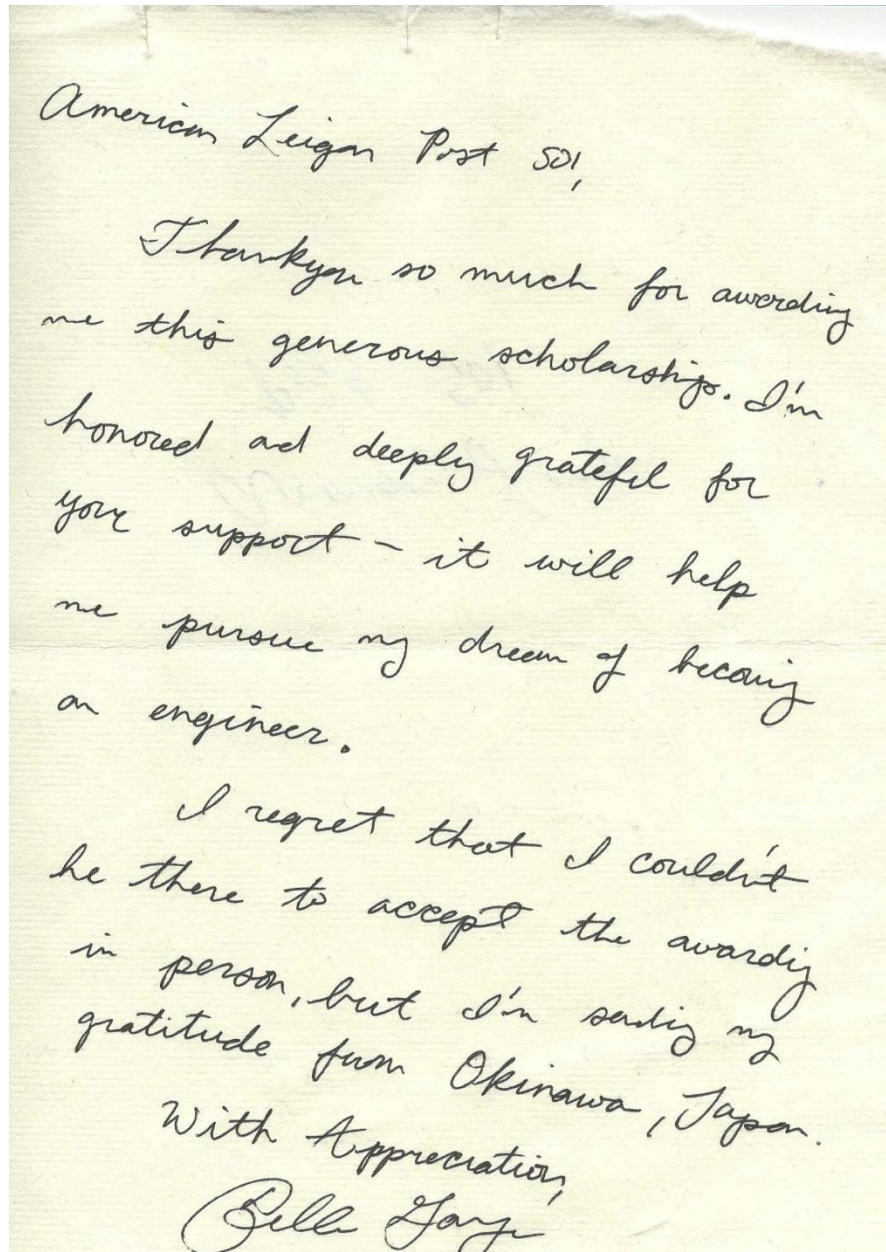 American Leigon Post 501,
Thankyou so much for awarding
me this generous scholarship. I'm
honored and deeply grateful for
your support – it will help
me pursue my dream of becoming
an engineer.
I regret that I couldn't
be there to accept the awarding
in person, but I'm sending my
gratitude from Okinawa, Japan.
With Appreciation,
Bella